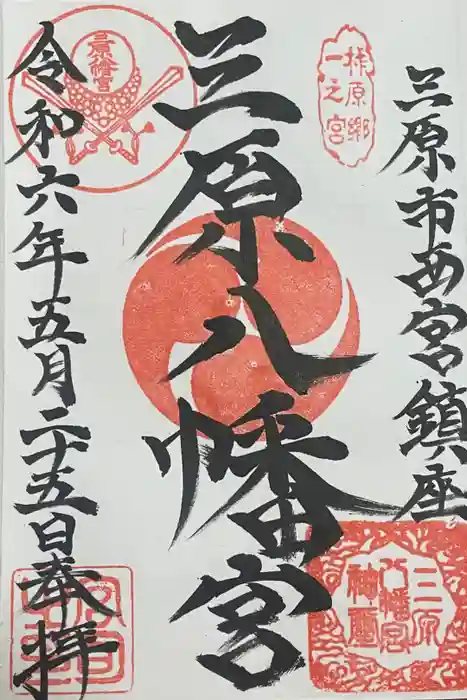 柞原郷
一之宮
三原市西宮鎮座
三原八幡宮
三原八幡宮
令和六年五月二十五日奉拝
三原
八幡宮
神璽